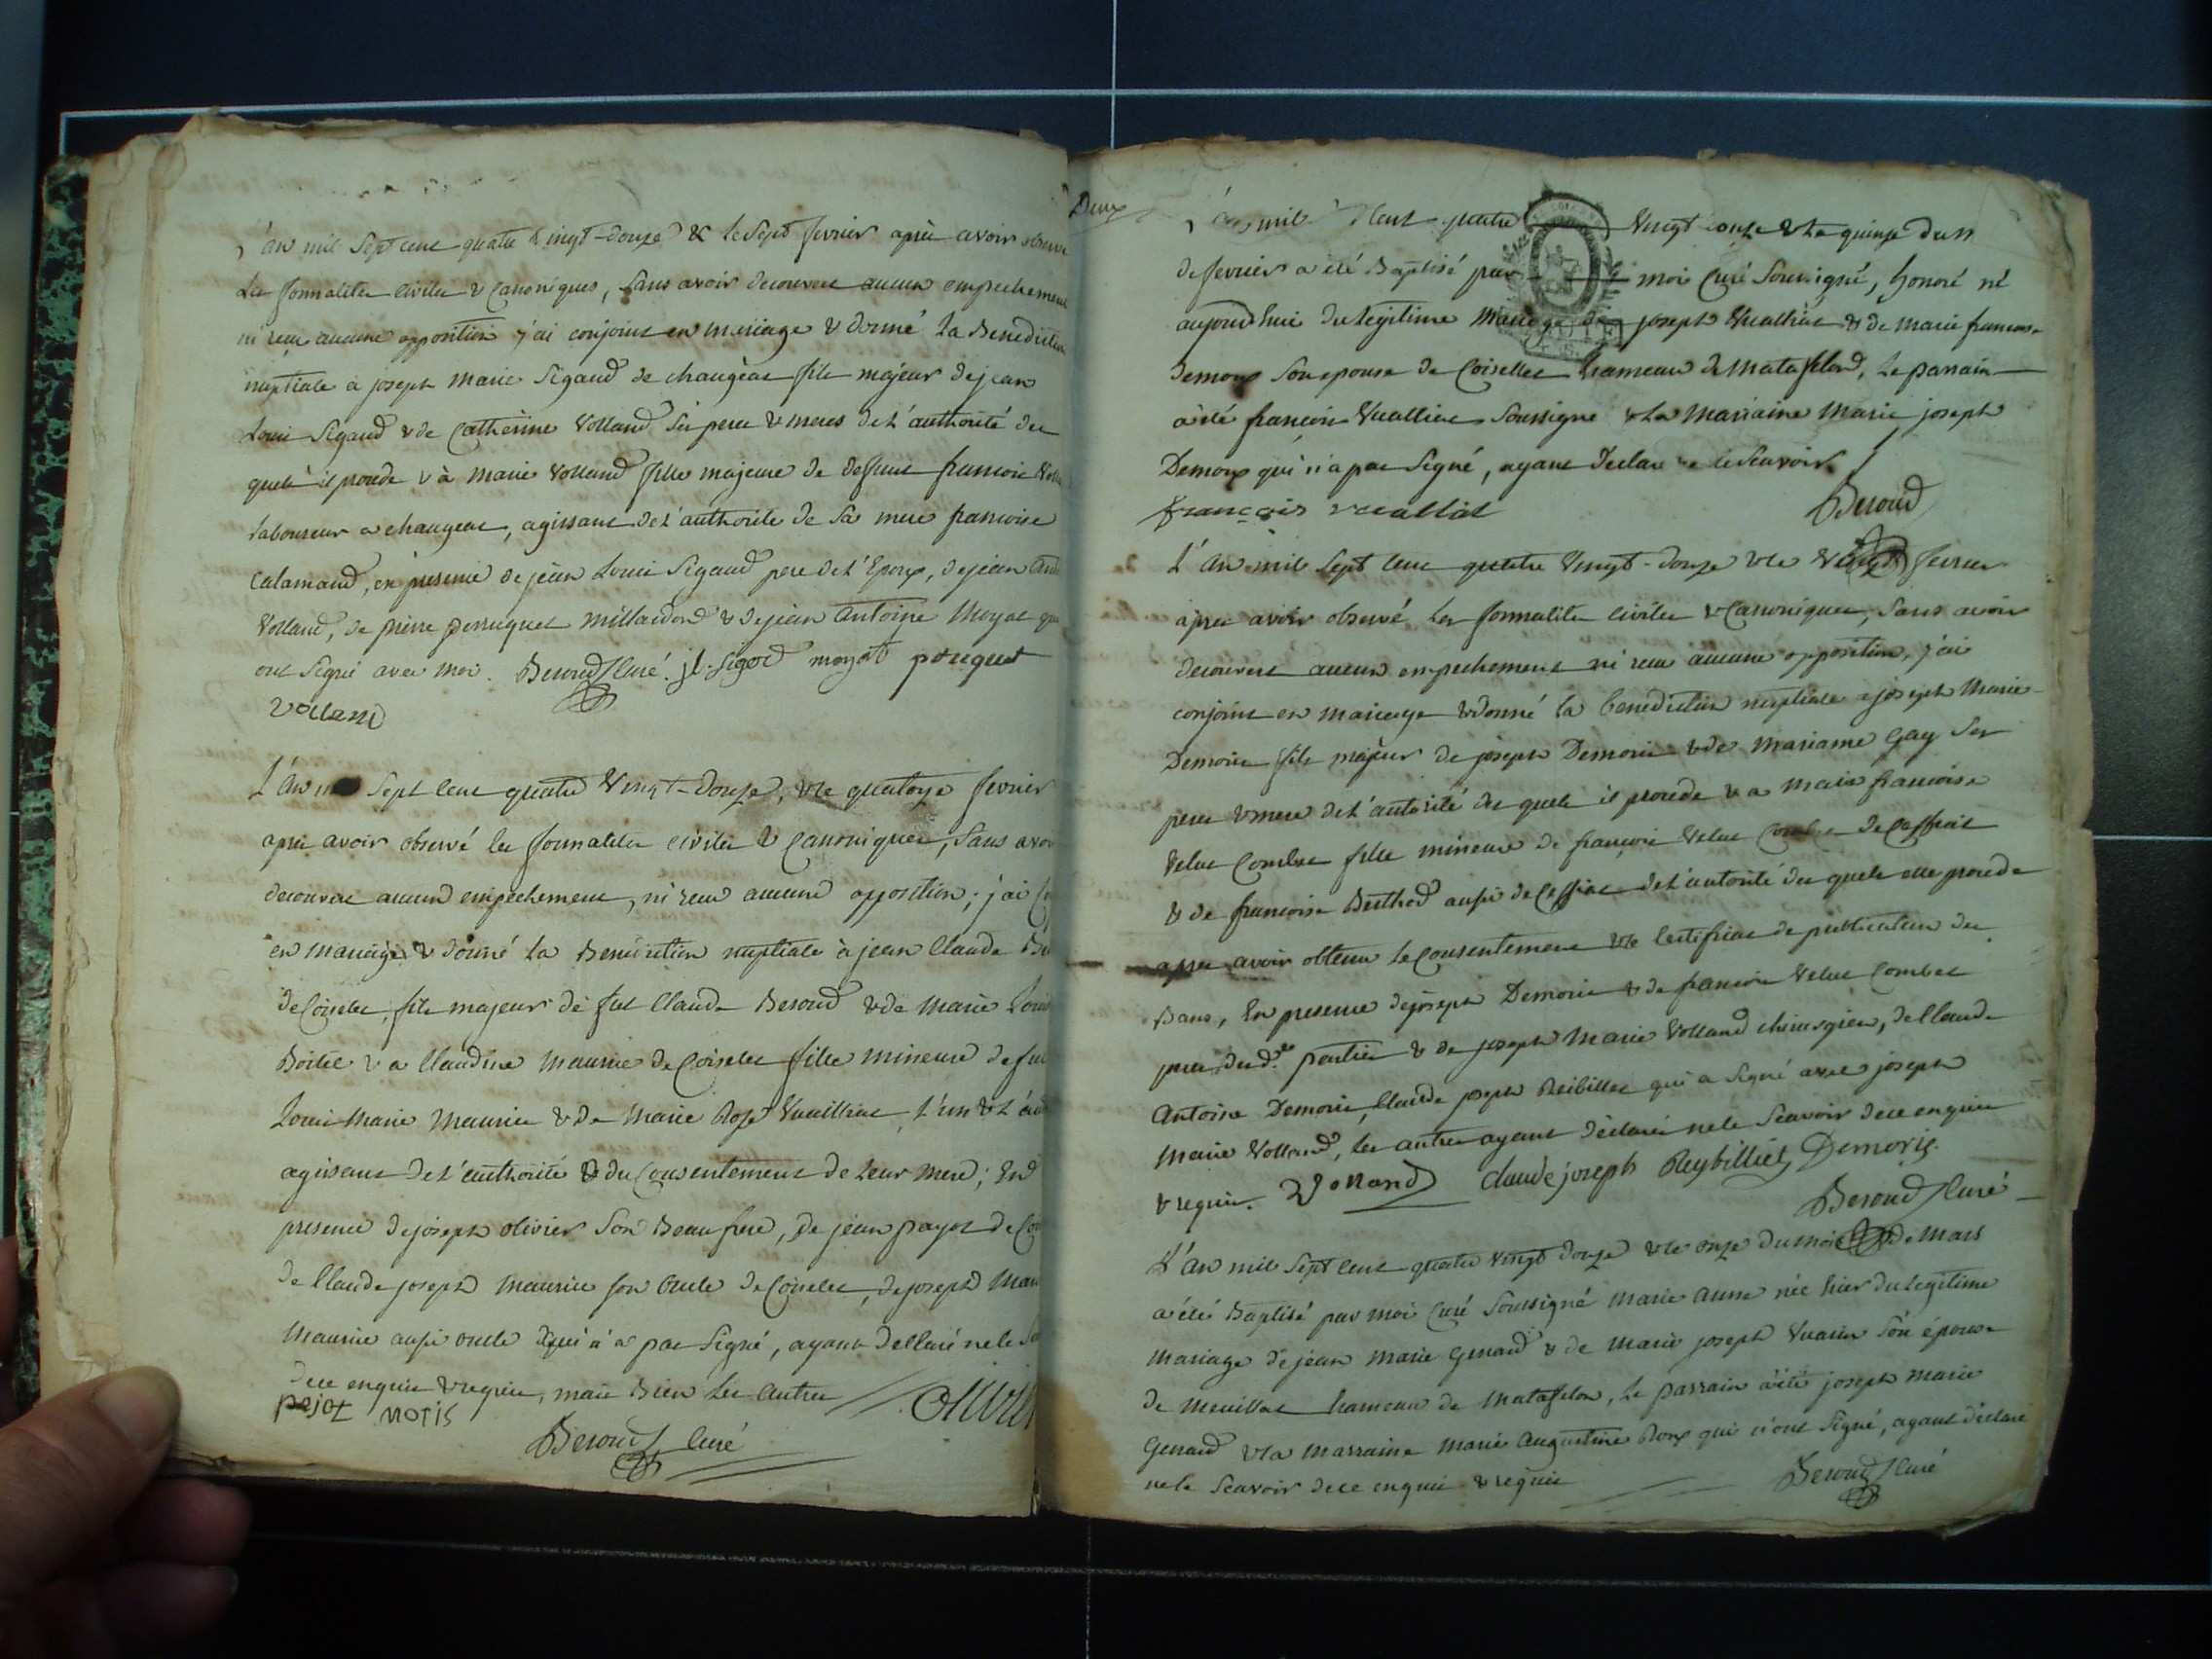 L'an mil Sept cent quatre vingt-douze & le Sept fevrier après avoir observé
Les formalites civiles & Canoniques, Sans avoir decouvert aucun empechement
ni reçu aucune opposition j'ai conjoint en mariage & donné La Benediction
nuptiale à joseph Marie Sigaud de changeat fils majeur de jean
Louis Sigaud & de Catherine Volland Ses pere & meres de L'authorité des
quels il procede & à Marie Volland fille majeure de deffunt francois
Laboureur a changeat, agissant de L'authorite de Sa mere francoise
Calamand, en presence de jean Louis Sigaud pere de L'Epoux, de jean
Volland, de pierre perruquet millardon & de jean Antoine Moyat qui
ont Signé avec moi. Beroud Curé. jl. Sigod moyat
Volland
L'an Sept cent quatre Vingt-Douze, & le quatorze fevrier
après avoir observé les formalites civiles & Canoniques, Sans avoir
decouvert aucun empechement, ni reçu aucune opposition; j'ai
en mariage & donné La Benediction nuptiale à jean Claude
de Coiselet, fils majeur de fut Claude Beroud & de Marie
& a Claudine Maurice de Coiselet fille mineure de fut
Louis Marie Maurice & de Marie Roze Vuailliat, L'un & L'autre
agissant de L'authorité & du Consentement de Leur Mere; En
presence de joseph olivier Son Beaufrere, de jean payot de
de Claude joseph Maurice Son Oncle de Coiselet, de joseph
Maurice aussi oncle qui n'a pas Signé, ayant declaré ne le
de ce enquis & requis, mais Bien Les Autres
pejot moris
Beroud Curé
Deux
L'an mil Sept Cent quatre Vingt douze & le quinze du
de fevrier a été Baptisé par moi Curé Soussigné, honoré né
aujourdhui du Legitime Mariage de joseph Vuailliat & de Marie francoise
Demoux Son epouse de Coisellet hameau de Matafelond, Le parrain
a été francois Vuailliat Soussigné & La Marraine Marie joseph
Demoux qui n'a pas Signé, ayant Declaré ne le Scavoir
françois vualliat Beroud
L'an mil Sept Cent quatre Vingt-douze & le Vingt fevrier
après avoir observé Les formalites civiles & Canoniques, Sans avoir
decouvert aucun empechement ni reçu aucune opposition, j'ai
conjoint en mariage & donné La benediction nuptiale a joseph Marie
Demorie fils majeur de joseph Demorie & de Mariame Gay Ses
pere & mere de L'autorité des quels il procede & a Marie francoise
Velut Combet fille mineure de francois Velut Combet de
& de francoise Berthod aussi de de L'autorité des quels elle procede
apres avoir obtenu Le Consentement & le Certificat de publication des
Bans, En presence de joseph Demorie & de francois Velut Combet
peres des d. parties & de joseph Marie Volland chirurgien, de Claude
Antoine Demorie, Claude joseph Reibillet qui a Signé avec joseph
Marie Volland, Les autres ayant declaré ne le Scavoir de ce enquis
& requis. Volland Claude joseph Reybilliet Demorie
Beroud Curé
L'an mil Sept Cent quatre vingt douze & le onze du mois de Mars
a été Baptisé par moi Curé Soussigné Marie Anne née hier du Legitime
Mariage de jean Marie Genaud & de Marie joseph Son épouse
de hameau de Matafelon, Le parrain a été joseph Marie
Genaud & la Marraine Marie Augustine Roux qui n'ont Signé, ayant déclaré
ne le Scavoir de ce enquis & requis Beroud Curé